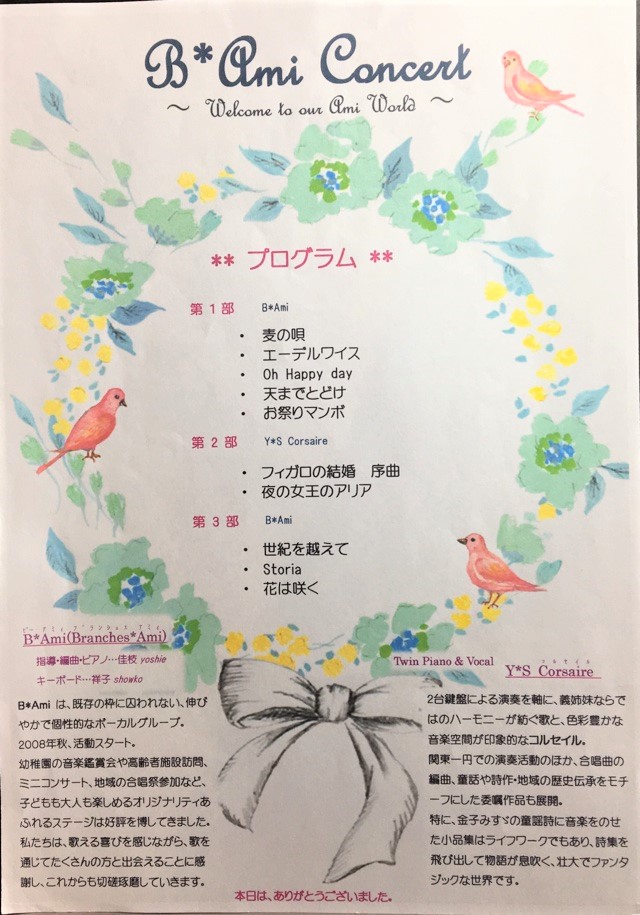 B*Ami Concert
～ Welcome to our Ami World ～
** プログラム **
第１部 B*Ami
・ 麦の唄
・ エーデルワイス
・ Oh Happy day
・ 天までとどけ
・ お祭りマンボ
第２部 Y*S Corsaire
・ フィガロの結婚　序曲
・ 夜の女王のアリア
第３部 B*Ami
・ 世紀を越えて
・ Storia
・ 花は咲く
B*Ami(Branches*Ami)
指導・編曲・ピアノ…佳枝 yoshie
キーボード…祥子 showko
B*Ami は、既存の枠に囚われない、伸び
やかで個性的なボーカルグループ。
2008年秋、活動スタート。
幼稚園の音楽鑑賞会や高齢者施設訪問、
ミニコンサート、地域の合唱祭参加など、
子どもも大人も楽しめるオリジナリティあ
ふれるステージは好評を博してきました。
私たちは、歌える喜びを感じながら、歌を
通じてたくさんの方と出会えることに感
謝し、これからも切磋琢磨していきます。
Twin Piano & Vocal Y*S Corsaire
2台鍵盤による演奏を軸に、義姉妹ならで
はのハーモニーが紡ぐ歌と、色彩豊かな
音楽空間が印象的なコルセイル。
関東一円での演奏活動のほか、合唱曲の
編曲、童話や詩作・地域の歴史伝承をモチ
ーフにした委嘱作品も展開。
特に、金子みすゞの童謡詩に音楽をのせ
た小品集はライフワークでもあり、詩集を
飛び出して物語が息吹く、壮大でファンタ
ジックな世界です。
本日は、ありがとうございました。